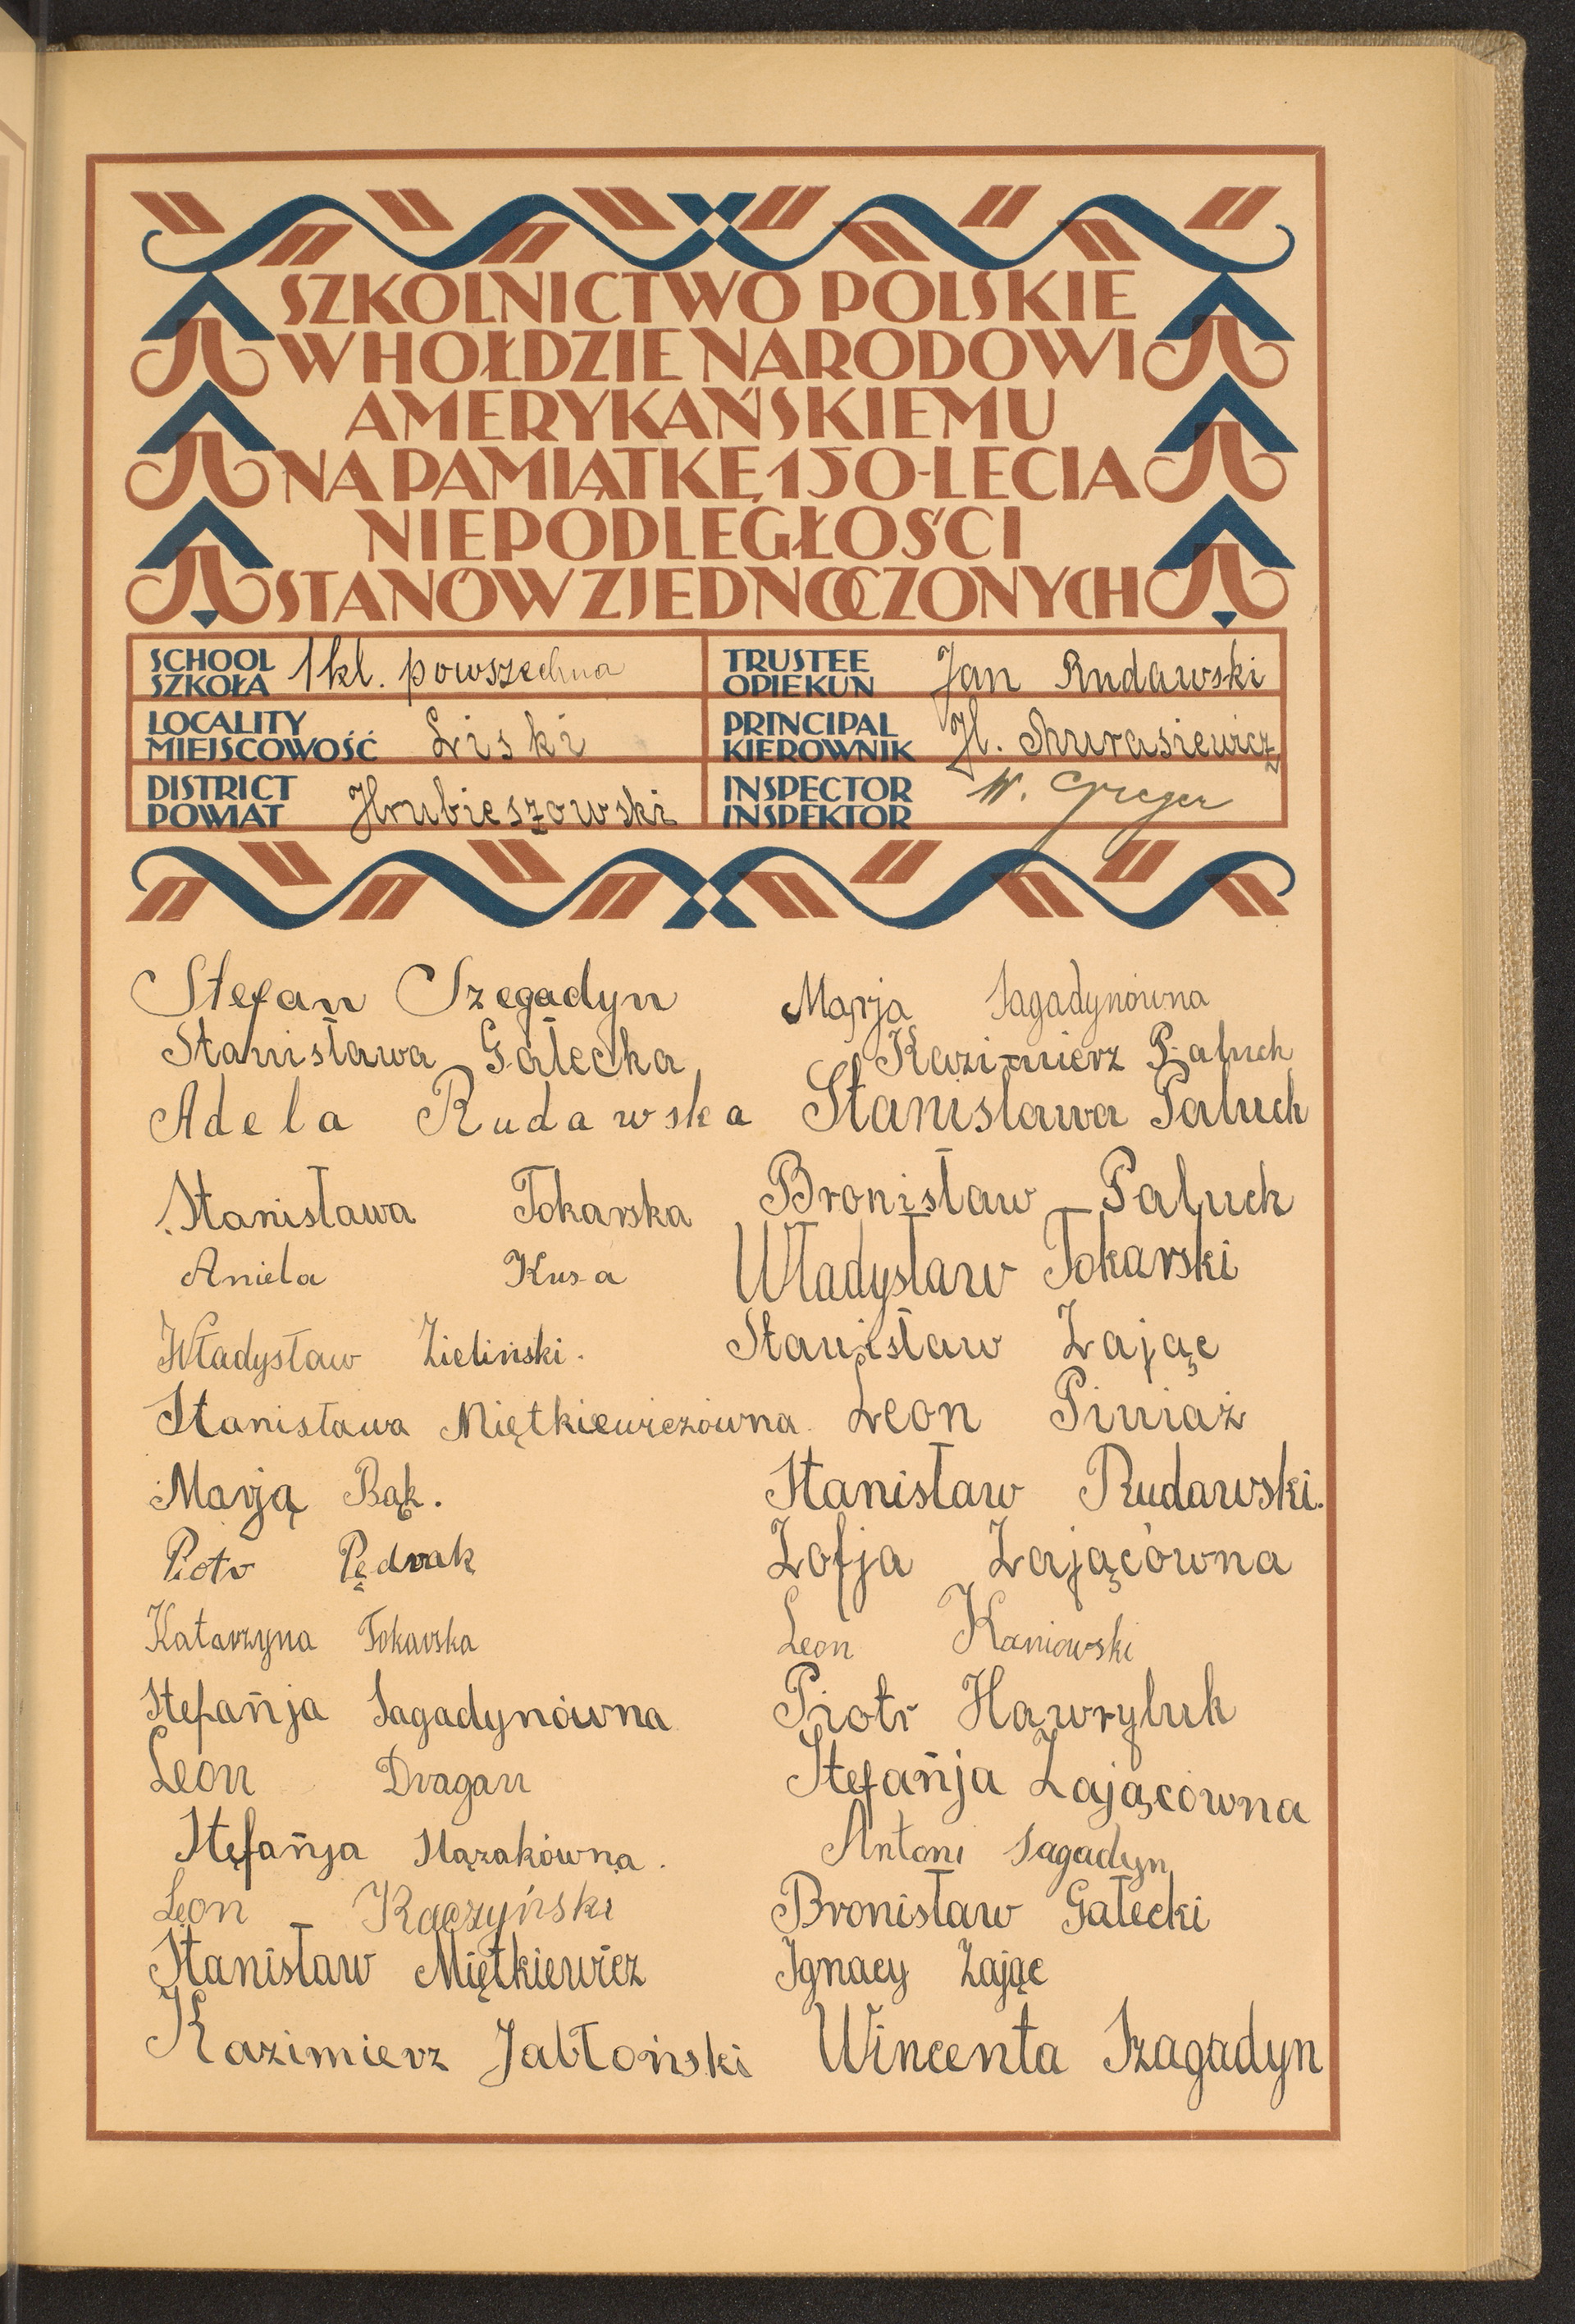 SZKOLNICTWO POLSKIE
W HOŁDZIE NARODOWI
AMERYKAŃSKIEMU
NA PAMIĄTKĘ 150-LECIA
NIEPODLEGŁOŚCI
STANÓW ZJEDNOCZONYCH
SCHOOL
SZKOŁA
1 kl. powszechna
TRUSTEE
OPIEKUN
Jan Rudawski
LOCALITY
MIEJSCOWOŚĆ
Liski
PRINCIPAL
KIEROWNIK
H.
DISTRICT
POWIAT
Hrubieszowski
INSPECTOR
INSPEKTOR
W. Greger
Stefan Szegadyn
Stanisława Gałecka
Adela Rudawska
Stanisława Tokarska
Aniela Kusa
Władysław Zieliński.
Stanisława Miętkiewiczówna
Marją Bąk.
Piotr Pędrak
Katarzyna Tokarska
Stefańja Sagadynówna
Leon Dragan
Stęfańja Ślązakówna.
Leon Kaczyński
Stanisław Miętkiewicz
Kazimierz Jabłoński
Marja Sagadynówna
Kazimierz Paluch
Stanisława Paluch
Bronisław Paluch
Władysław Tokarski
Stanisław Zając
Leon Piniaż
Stanisław Rudawski.
Zofja Zającówna
Leon Kaniowski
Piotr Hawryluk
Stefańja Zającówna
Antoni Sagadyn
Bronisław Gałecki
Ignacy Zając
Wincenta Szagadyn